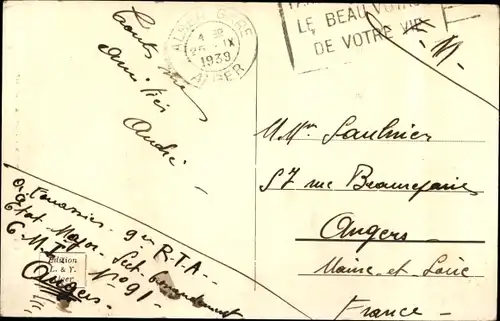 Toutes mes
amitiés
André
ALGER GARE
4
25 IX
1939
ALGER
LE BEAU
DE VOTRE VIE
F. M.
Saulnier
57 rue Beaurepaire
Angers
Maine et Loire
France
9e R.T.A
Etat Major
C. M. N° 91
Angers
Edition
L. & Y.
Alger